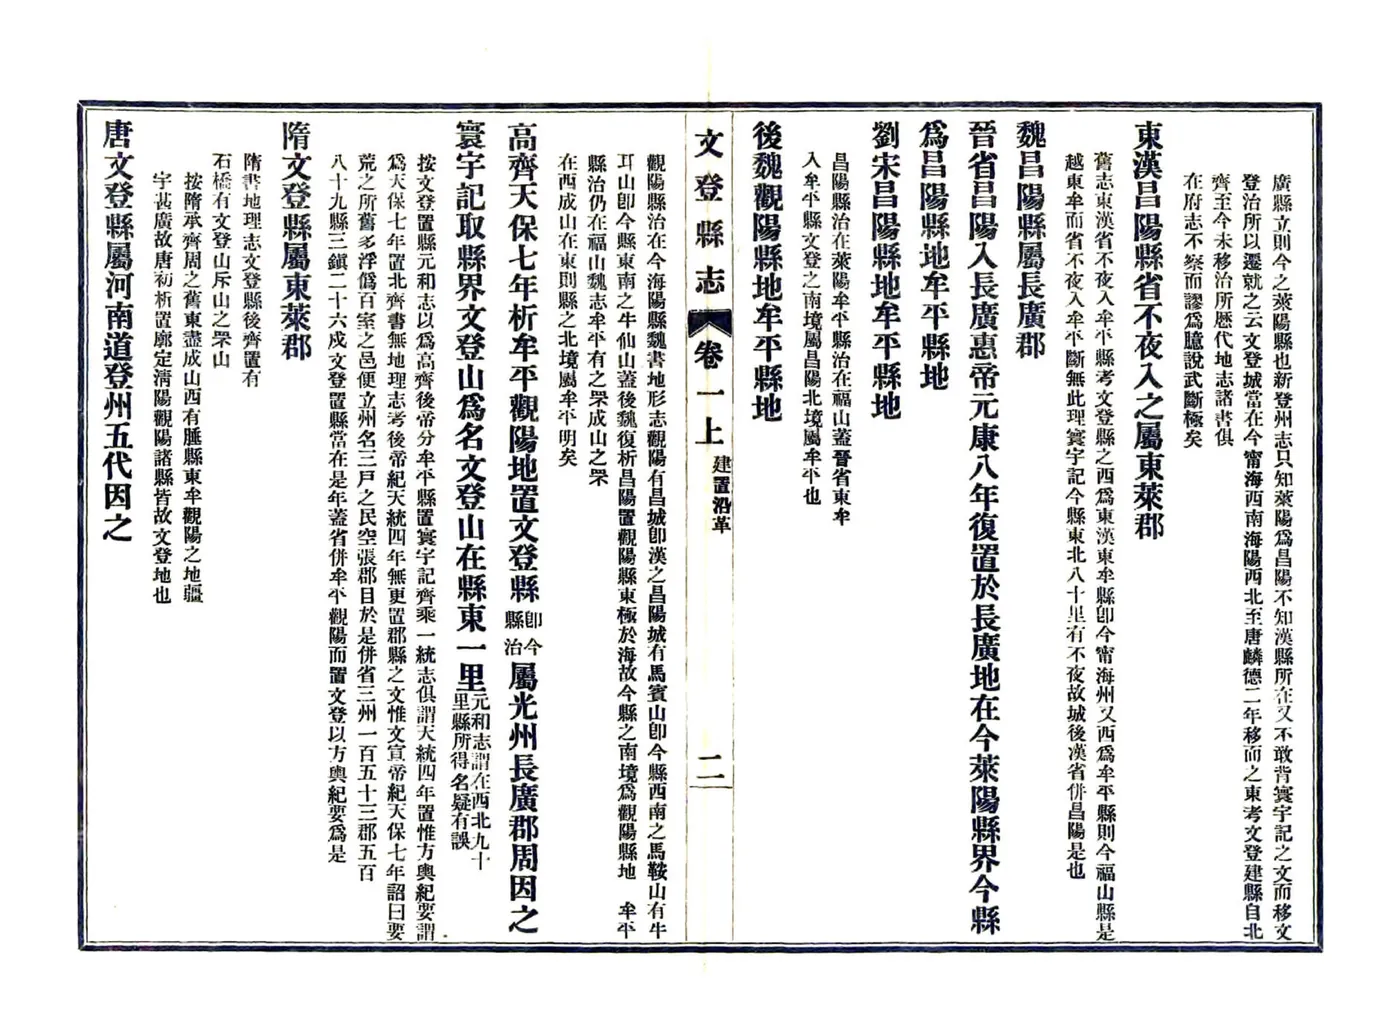 廣縣立則今之萊陽縣也新登州志只知萊陽爲昌陽不知漢縣所在又不敢背寰宇記之文而移文
登治所以遷就之云文登城當在今甯海西南海陽西北至唐麟德二年移而之東考文登建縣自北
齊至今未移治所歷代地志諸書俱
在府志不察而謬爲臆說武斷極矣
東漢昌陽縣省不夜入之屬東萊郡
舊志東漢省不夜入牟平縣考文登縣之西爲東漢東牟縣卽今甯海州又西爲牟平縣則今福山縣是
越東牟而省不夜入牟平斷無此理寰宇記今縣東北八十里有不夜故城後漢省併昌陽是也
魏昌陽縣屬長廣郡
晉省昌陽入長廣惠帝元康八年復置於長廣地在今萊陽縣界今縣
爲昌陽縣地牟平縣地
劉宋昌陽縣地牟平縣地
昌陽縣治在萊陽牟平縣治在福山蓋晉省東牟
入牟平縣文登之南境屬昌陽北境屬牟平也
後魏觀陽縣地牟平縣地
文登縣志
卷一上
建置沿革
二
觀陽縣治在今海陽縣魏書地形志觀陽有昌城卽漢之昌陽城有馬賓山卽今縣西南之馬鞍山有牛
耳山卽今縣東南之牛仙山蓋後魏復析昌陽置觀陽縣東極於海故今縣之南境爲觀陽縣地 牟平
縣治仍在福山魏志牟平有之罘成山之罘
在西成山在東則縣之北境屬牟平明矣
高齊天保七年析牟平觀陽地置文登縣卽今縣治屬光州長廣郡周因之
寰宇記取縣界文登山爲名文登山在縣東一里元和志謂在西北九十里縣所得名疑有誤
按文登置縣元和志以爲高齊後帝分牟平縣置寰宇記齊乘一統志俱謂天統四年置惟方輿紀要謂
爲天保七年置北齊書無地理志考後帝紀天統四年無更置郡縣之文惟文宣帝紀天保七年詔曰要
荒之所舊多浮僞百室之邑便立州名三戶之民空張郡目於是併省三州一百五十三郡五百
八十九縣三鎮二十六戍文登置縣當在是年蓋省併牟平觀陽而置文登以方輿紀要爲是
隋文登縣屬東萊郡
隋書地理志文登縣後齊置有
石橋有文登山斥山之罘山
按隋承齊周之舊東盡成山西有腄縣東牟觀陽之地疆
宇甚廣故唐初析置廓定清陽觀陽諸縣皆故文登地也
唐文登縣屬河南道登州五代因之